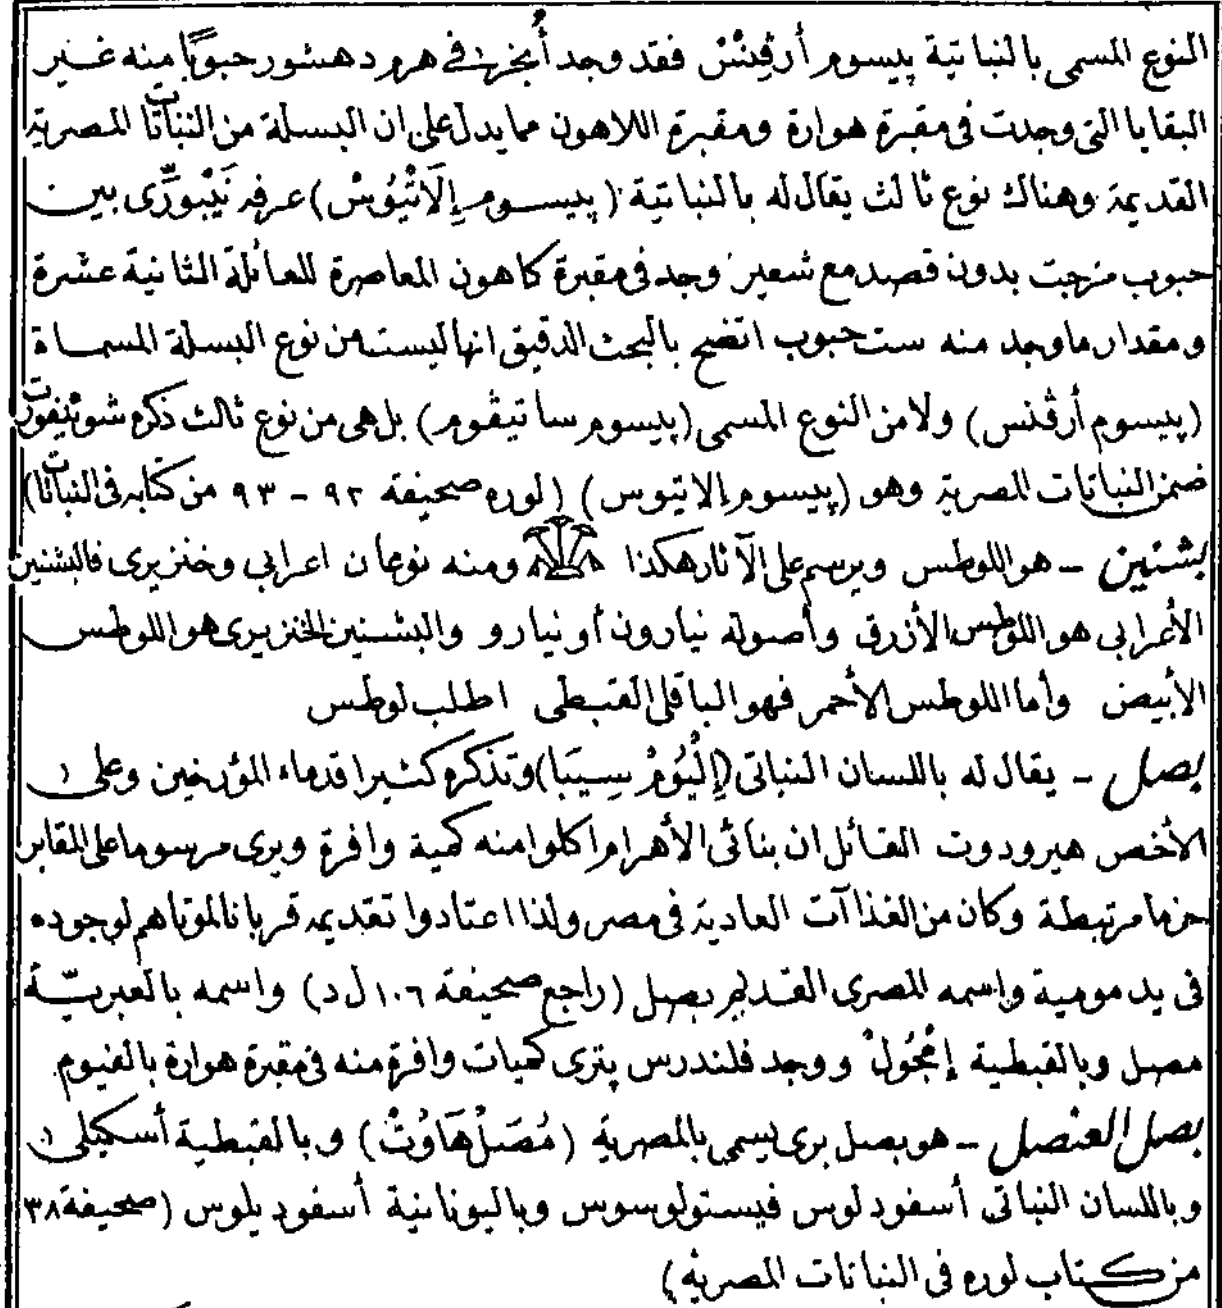 النوع المسمى بالنباتية پيسوم أرڤِنْسْ فقد وجد أُنجِر في هرم دهشور حبوبًا منه غير
البقايا التي وجدت في مقبرة هوارة ومقبرة اللاهون مما يدل على ان البسلة من النباتات المصرية
القديمة وهناك نوع ثالث يقال له بالنباتية (پيسوم إِلَاتْيُوسْ) عرفه نَيْبورِّى بين
حبوب مزجت بدون قصد مع شعير وجد في مقبرة كاهون المعاصرة للعائلة الثانية عشرة
ومقدار ما وجد منه ست حبوب اتضح بالبحث الدقيق انها ليست من نوع البسلة المسماة
(پيسوم أرڤنس) ولا من النوع المسمى (پيسوم ساتيڤوم) بل هي من نوع ثالث ذكره شوئنفورت
ضمن النباتات المصرية وهو (پيسوم إلاتيوس) (لوره صحيفة ٩٢ - ٩٣ من كتابه في النباتات)
بشنين - هو اللوطس ويرسم على الآثار هكذا ومنه نوعان اعرابي وخنزيرى فالبشنين
الأعرابي هو اللوطس الأزرق وأصوله نيارون أو نيارو والبشنين الخنزيرى هو اللوطس
الأبيض وأما اللوطس الأحمر فهو الباقلى القبطى اطلب لوطس
بصل - يقال له باللسان النباتى (إِلْيُومْ سِيبَا) وتذكره كثيرا قدماء المؤرخين وعلى
الأخص هيرودوت القائل ان بنائى الأهرام اكلوا منه كمية وافرة ويرى مرسوما على المقابر
حزما مرتبطة وكان من الغذاآت العادية في مصر ولذا اعتادوا تقديمه قربانا لموتاهم لوجوده
في يد مومية واسمه المصرى القديم بصل (راجع صحيفة ١٠٦ ل د) واسمه بالعبريّة
مصل وبالقبطية إِمْجُولْ ووجد فلندرس پترى كميات وافرة منه في مقبرة هوارة بالفيوم
بصل العنصل - هو بصل برى يسمى بالمصرية (مُصَلْ هَاوُتْ) وبالقبطية أسكيلى
وباللسان النباتى أسفودلوس فيستولوسوس وباليونانية أسفوديلوس (صحيفة ٣٨
من كتاب لوره في النباتات المصرية)